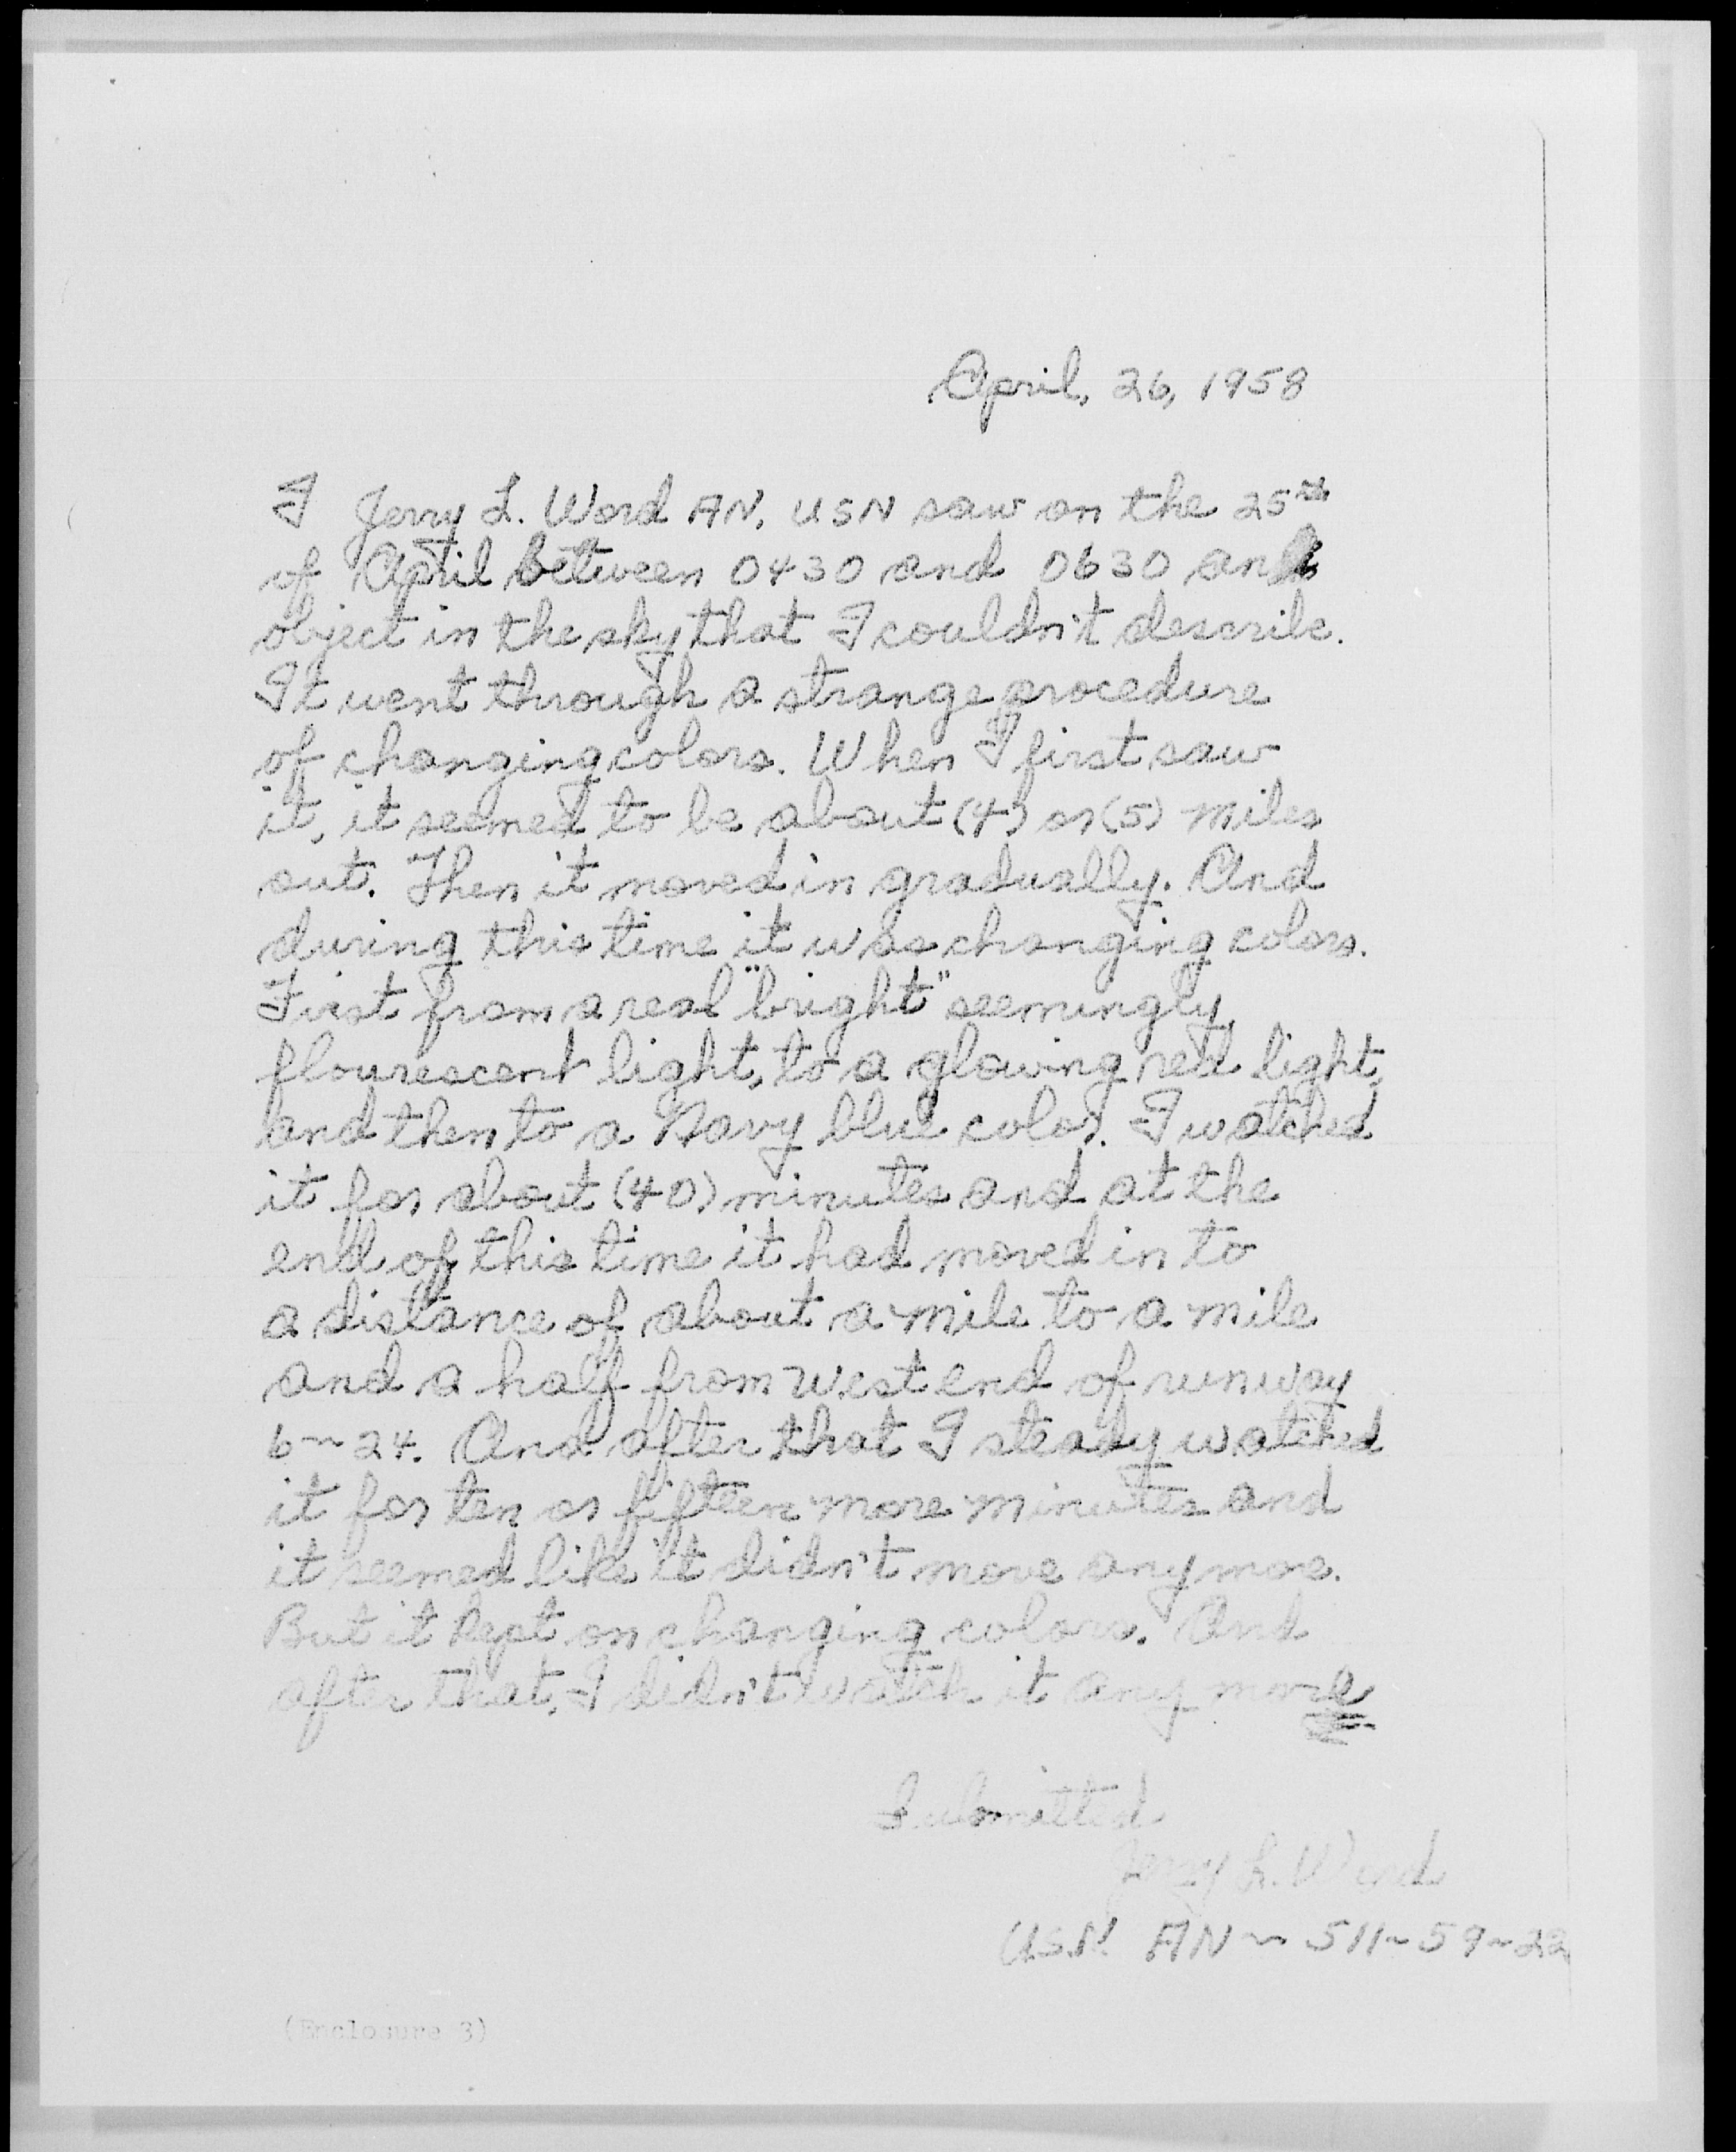 April, 26, 1958
I Jerry L. Word AN, USN saw on the 25th
of April between 0430 and 0630 an
object in the sky that I couldn't describe.
It went through a strange procedure
of changing colors. When I first saw
it, it seemed to be about (4) or (5) miles
out. Then it moved in gradually. And
during this time it was changing colors.
First from a real "bright" seemingly
flourescent light, to a glowing red light,
and then to a Navy blue color. I watched
it for about (40) minutes and at the
end of this time it had moved in to
a distance of about a mile to a mile
and a half from west end of runway
6~24. And after that I steady watched
it for ten or fifteen more minutes and
it seemed like it didn't move anymore.
But it kept on changing colors. And
after that, I didn't watch it any more
Submitted
Jerry L. Word
U.S.N. AN ~ 511~59~22
(Enclosure 3)